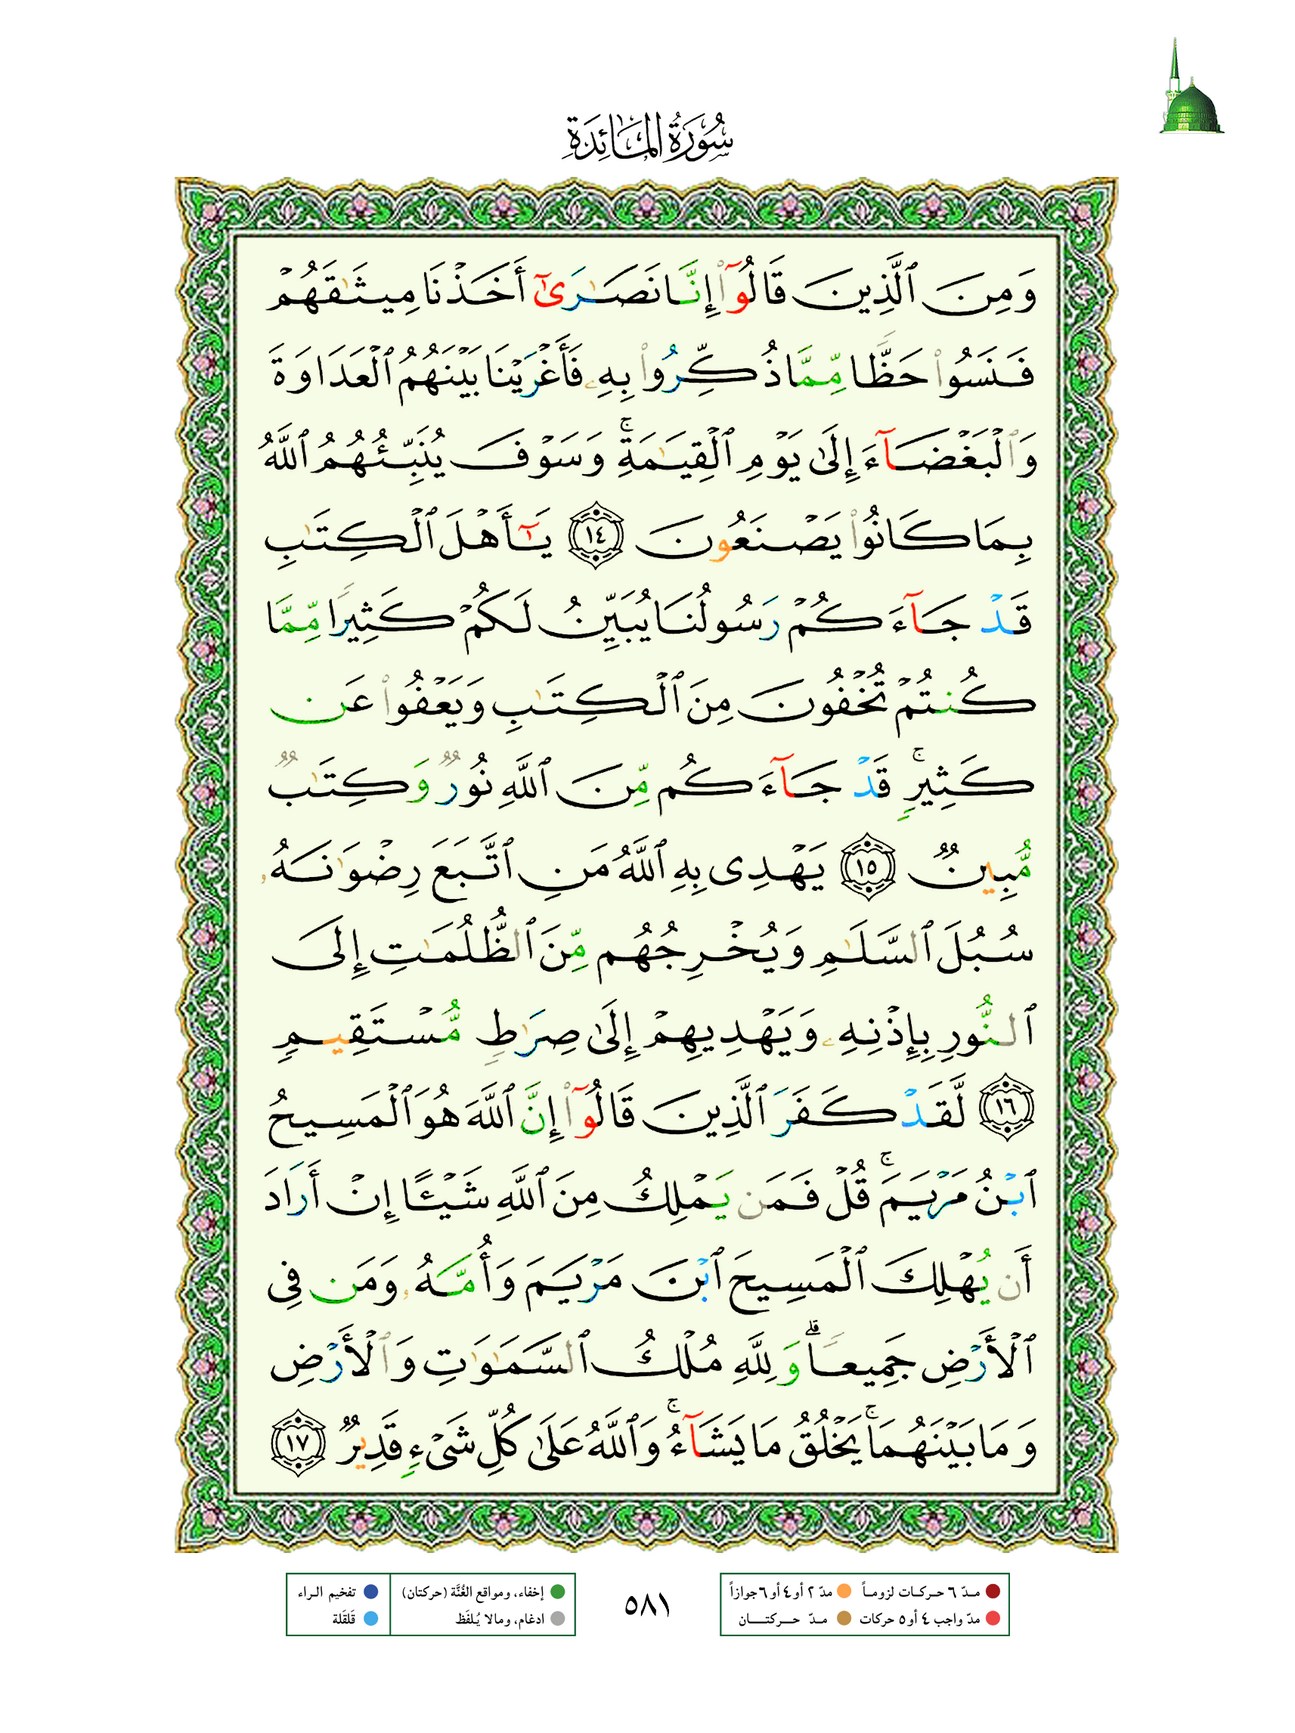 سُورَةُ المَائِدَةِ
وَمِنَ ٱلَّذِينَ قَالُوٓا۟ إِنَّا نَصَـٰرَىٰٓ أَخَذْنَا مِيثَـٰقَهُمْ
فَنَسُوا۟ حَظًّا مِّمَّا ذُكِّرُوا۟ بِهِۦ فَأَغْرَيْنَا بَيْنَهُمُ ٱلْعَدَاوَةَ
وَٱلْبَغْضَآءَ إِلَىٰ يَوْمِ ٱلْقِيَـٰمَةِ ۚ وَسَوْفَ يُنَبِّئُهُمُ ٱللَّهُ
بِمَا كَانُوا۟ يَصْنَعُونَ ١٤ يَـٰٓأَهْلَ ٱلْكِتَـٰبِ
قَدْ جَآءَكُمْ رَسُولُنَا يُبَيِّنُ لَكُمْ كَثِيرًا مِّمَّا
كُنتُمْ تُخْفُونَ مِنَ ٱلْكِتَـٰبِ وَيَعْفُوا۟ عَن
كَثِيرٍ ۚ قَدْ جَآءَكُم مِّنَ ٱللَّهِ نُورٌ وَكِتَـٰبٌ
مُّبِينٌ ١٥ يَهْدِى بِهِ ٱللَّهُ مَنِ ٱتَّبَعَ رِضْوَٰنَهُۥ
سُبُلَ ٱلسَّلَـٰمِ وَيُخْرِجُهُم مِّنَ ٱلظُّلُمَـٰتِ إِلَى
ٱلنُّورِ بِإِذْنِهِۦ وَيَهْدِيهِمْ إِلَىٰ صِرَٰطٍ مُّسْتَقِيمٍ
١٦ لَّقَدْ كَفَرَ ٱلَّذِينَ قَالُوٓا۟ إِنَّ ٱللَّهَ هُوَ ٱلْمَسِيحُ
ٱبْنُ مَرْيَمَ ۚ قُلْ فَمَن يَمْلِكُ مِنَ ٱللَّهِ شَيْـًٔا إِنْ أَرَادَ
أَن يُهْلِكَ ٱلْمَسِيحَ ٱبْنَ مَرْيَمَ وَأُمَّهُۥ وَمَن فِى
ٱلْأَرْضِ جَمِيعًا ۗ وَلِلَّهِ مُلْكُ ٱلسَّمَـٰوَٰتِ وَٱلْأَرْضِ
وَمَا بَيْنَهُمَا ۚ يَخْلُقُ مَا يَشَآءُ ۚ وَٱللَّهُ عَلَىٰ كُلِّ شَىْءٍ قَدِيرٌ ١٧
مدّ ٦ حركات لزوماً مدّ ٢ أو ٤ أو ٦ جوازاً
مدّ واجب ٤ أو ٥ حركات مدّ حركتان
٥٨١
إخفاء، ومواقع الغُنَّة (حركتان) تفخيم الراء
ادغام، ومالا يُلفَظ قلقلة